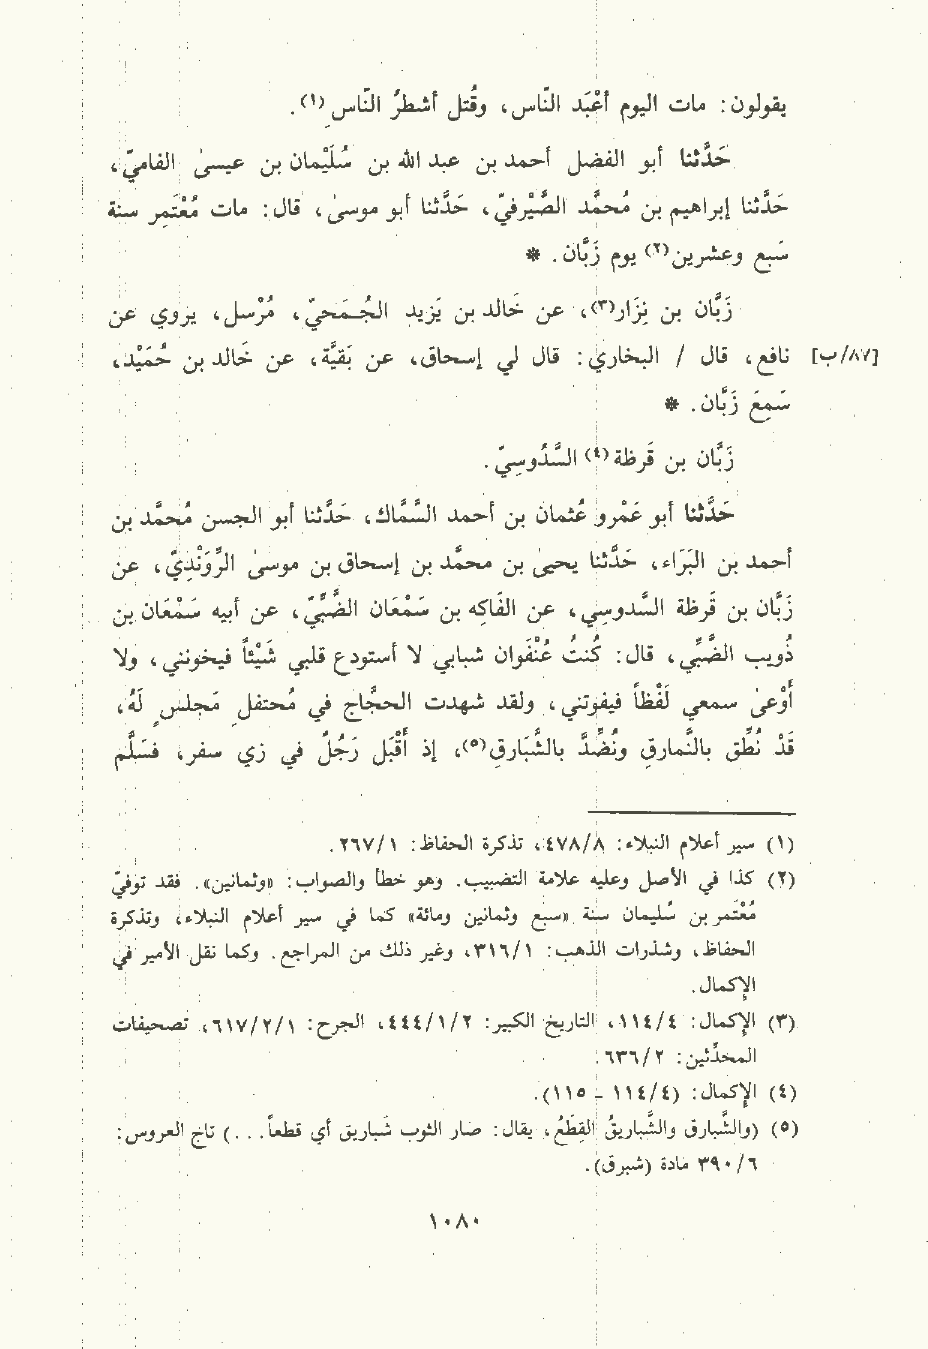 يقولون: مات اليوم أَعْبَد النّاس، وقُتل أشطرُ النّاسِ(١).
حَدَّثنا أبو الفضل أحمد بن عبد الله بن سُلَيْمان بن عيسىٰ الفاميّ،
حَدَّثنا إبراهيم بن مُحمَّد الصُّيْرفيّ، حَدَّثنا أبو موسىٰ، قال: مات مُعْتَمِر سنة
سَبع وعشرين(٢) يوم زَبَّان. *
زَبَّان بن نِزَار(٣)، عن خَالد بن يَزيد الجُـمَـحيّ، مُرْسل، يروي عن
[٨٧/ب] نافع، قال / البخاري: قال لي إسحاق، عن بَقيَّة، عن خَالد بن حُمَيْد،
سَمِعَ زَبَّان. *
زَبَّان بن قَرظة(٤) السَّدُوسِيّ.
حَدَّثنا أبو عَمْرو عُثمان بن أحمد السَّمَّاك، حَدَّثنا أبو الحسن مُحمَّد بن
أحمد بن البَرَاء، حَدَّثنا يحيىٰ بن محمَّد بن إسحاق بن موسىٰ الرَّوَنْدِيّ، عن
زَبَّان بن قَرظة السَّدوسِي، عن الفَاكِه بن سَمْعَان الضَّبِّيّ، عن أبيه سَمْعَان بن
ذُويب الضَّبِّي، قال: كُنتُ عُنْفَوان شبابي لا أستودع قلبي شَيْئاً فيخونني، ولا
أَوْعىٰ سمعي لَفْظاً فيفوتني، ولقد شهدت الحجَّاج في مُحتفلِ مَجلسٍ لَهُ،
قَدْ نُطِّق بالنَّمارقِ ونُضِّدَّ بالشَّبَارِق(٥)، إذ أَقْبَل رَجُلٌ في زي سفر، فسَلَّم
(١) سير أعلام النبلاء: ٤٧٨/٨، تذكرة الحفاظ: ٢٦٧/١.
(٢) كذا في الأصل وعليه علامة التضبيب. وهو خطأ والصواب: «وثمانين». فقد توفيّ
مُعْتَمر بن سُليمان سنة «سبع وثمانين ومائة» كما في سير أعلام النبلاء، وتذكرة
الحفاظ، وشذرات الذهب: ٣١٦/١، وغير ذلك من المراجع. وكما نقل الأمير في
الإكمال.
(٣) الإكمال: ١١٤/٤، التاريخ الكبير: ٤٤٤/١/٢، الجرح: ٦١٧/٢/١، تصحيفات
المحدِّثين: ٦٣٦/٢.
(٤) الإكمال: (١١٤/٤ - ١١٥).
(٥) (والشَّبارق والشَّباريقُ القِطَعُ، يقال: صار الثوب شَباريق أي قطعاً. . .) تاج العروس:
٣٩٠/٦ مادة (شبرق).
١٠٨٠